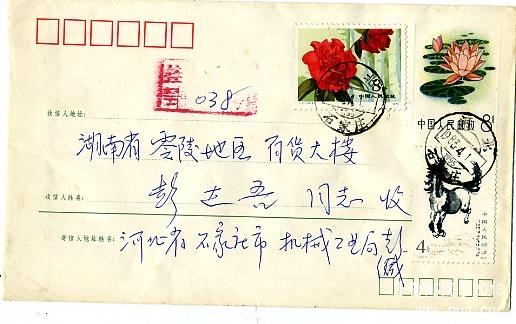 8分
中国人民邮政
038
石家庄
收信人地址:
湖南省 零陵地区 百货大楼
中国人民邮政 8分
收信人姓名:
彭 同志 收
寄信人地址姓名:
河北省石家庄市 机械工业局彭缄
中国人民邮政
4分